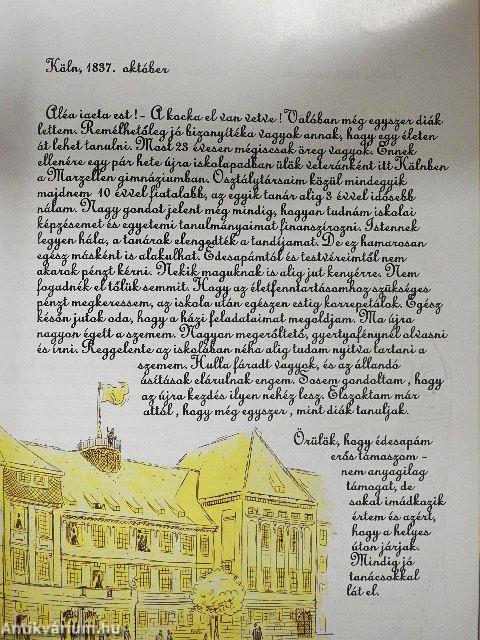 Köln, 1837. október
Aléa iacta est! - A kocka el van vetve! Valóban még egyszer diák
lettem. Remélhetőleg jó bizonyítéka vagyok annak, hogy egy életen
át lehet tanulni. Most 23 évesen mégiscsak öreg vagyok. Ennek
ellenére egy pár hete újra iskolapadban ülök veteránként itt Kölnben
a Marzellen gimnáziumban. Osztálytársaim közül mindegyik
majdnem 10 évvel fiatalabb, az egyik tanár alig 3 évvel idősebb
nálam. Nagy gondot jelent még mindig, hogyan tudnám iskolai
képzésemet és egyetemi tanulmányaimat finanszírozni. Istennek
legyen hála, a tanárok elengedték a tandíjamat. De ez hamarosan
egész másként is alakulhat. Édesapámtól és testvéreimtől nem
akarok pénzt kérni. Nekik maguknak is alig jut kenyérre. Nem
fogadnék el tőlük semmit. Hogy az életfenntartásomhoz szükséges
pénzt megkeressem, az iskola után egészen estig korrepetálok. Egész
későn jutok oda, hogy a házi feladataimat megoldjam. Ma újra
nagyon égett a szemem. Nagyon megerőltető, gyertyafénynél olvasni
és írni. Reggelente az iskolában néha alig tudom nyitva tartani a
szemem. Hulla fáradt vagyok, és az állandó
ásítások elárulnak engem. Sosem gondoltam, hogy
az újra kezdés ilyen nehéz lesz. Elszoktam már
attól, hogy még egyszer, mint diák tanuljak.
Örülök, hogy édesapám
erős támaszom -
nem anyagilag
támogat, de
sokat imádkozik
értem és azért,
hogy a helyes
úton járjak.
Mindig jó
tanácsokkal
lát el.
Antikvárium.hu